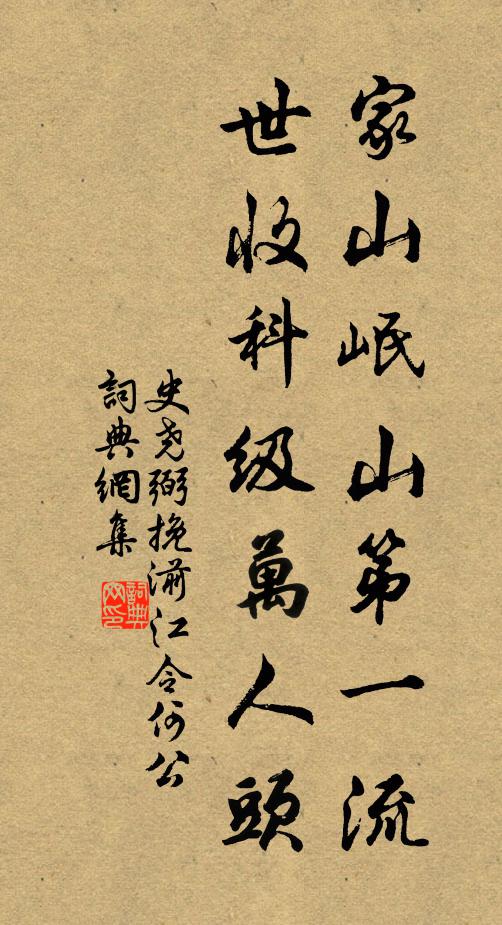 家山岷山第一流
世收科级萬人頭
史尧弼挽湔江令何公
詞典網集
詞典网印